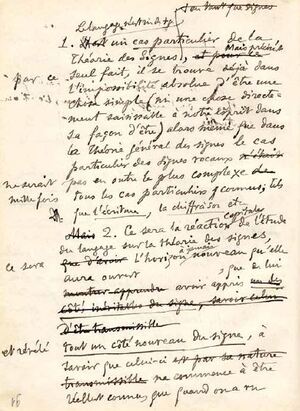 en tant que signes
Le langage
1. un cas particulier de la
Théorie des Signes), et pour le
Mais précisément
par ce seul fait, il se trouve déjà dans
l'impossibilité absolue d'être une
chose simple (ni une chose directe-
ment saisissable à notre esprit dans
sa façon d'être) alors même que dans
la théorie générale des signes le cas
particulier des signes vocaux
ne serait pas en outre le plus complexe de
mille fois tous les cas particuliers connus, tels
que l'écriture, la chiffraison etc
Mais 2. Ce sera la réaction capitale de l'étude
du langage sur la théorie des signes,
ce sera l'horizon à jamais nouveau qu'elle
aura ouvert, que de lui
montrer apprendre avoir appris un
côté du signe, savoir celui
d'être transmissible
et révélé tout un côté nouveau du signe, à
savoir que celui-ci est par sa nature
transmissible ne commence à être
réellement connu que quand on a vu